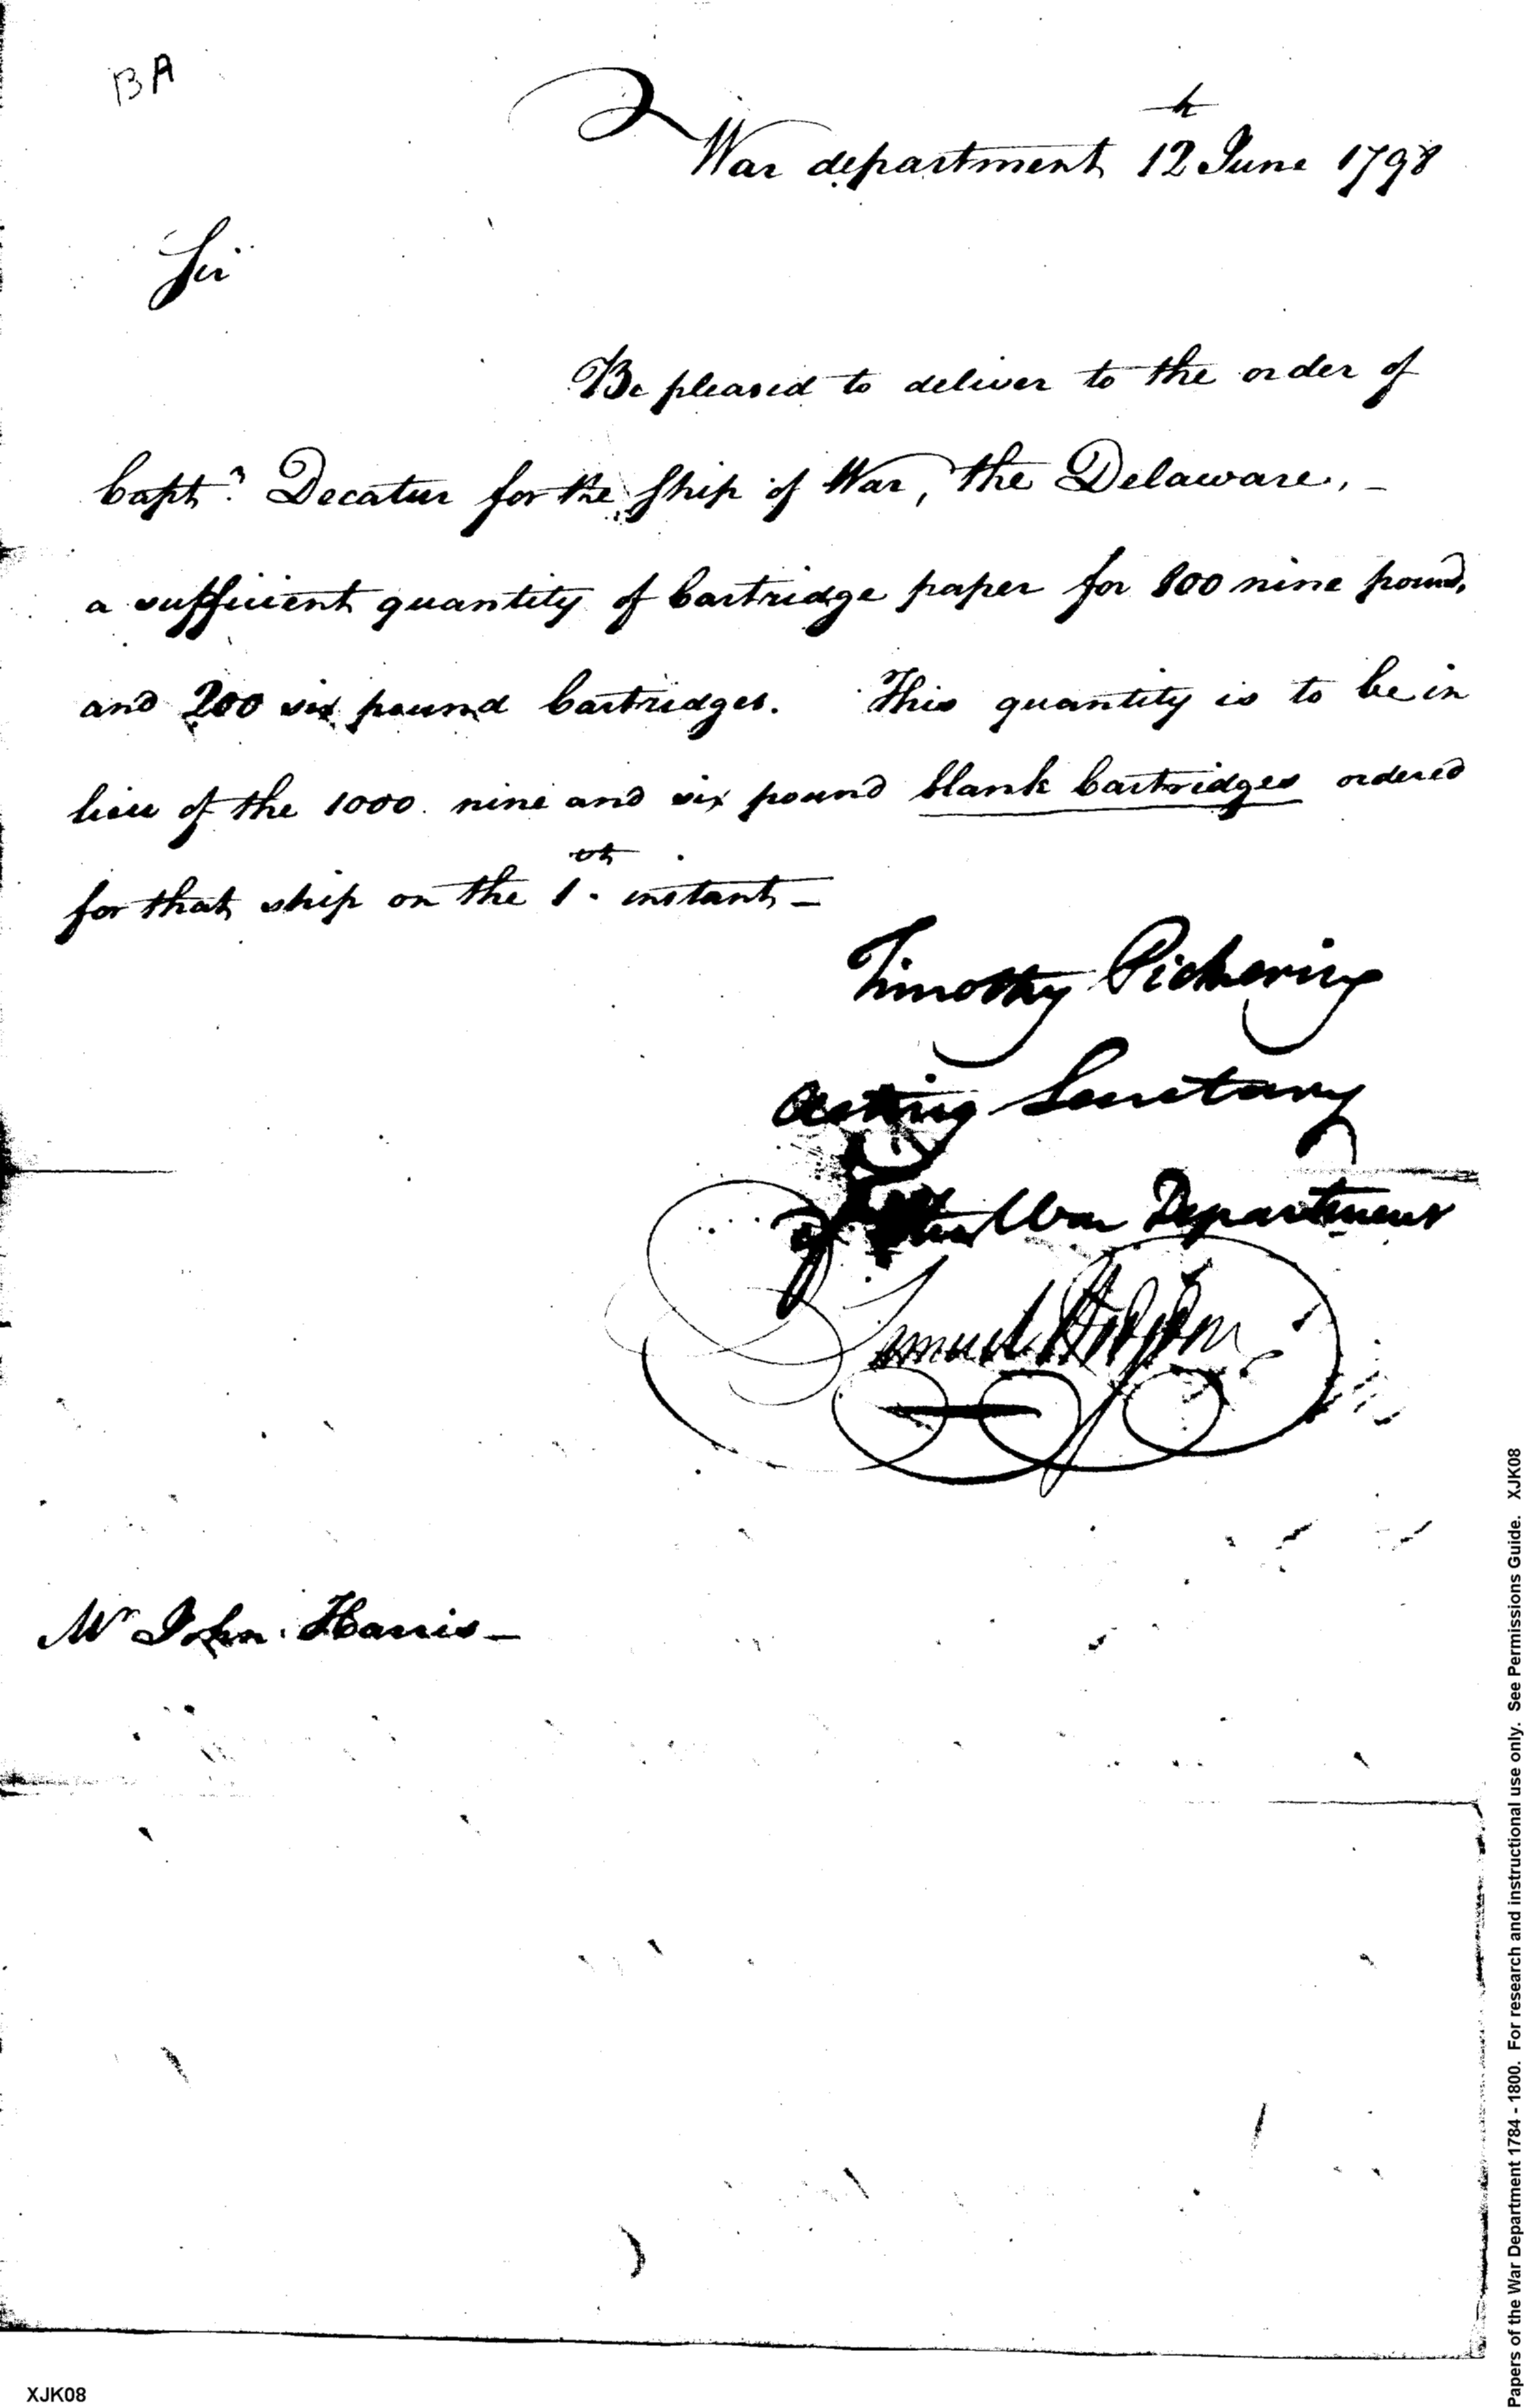 BA
War department 12th June 1798
Sir
Be pleased to deliver to the order of
Captn. Decatur for the Ship of War, the Delaware, -
a sufficient quantity of Cartridge paper for 800 nine pound,
and 200 six pound Cartridges. This quantity is to be in
lieu of the 1000 nine and six pound blank Cartridges ordered
for that ship on the 1st. instant -
Timothy Pickering
Acting Secretary
of the War Department
Samuel Hodgdon
Mr John Harris -
XJK08
Papers of the War Department 1784 - 1800. For research and instructional use only. See Permissions Guide. XJK08